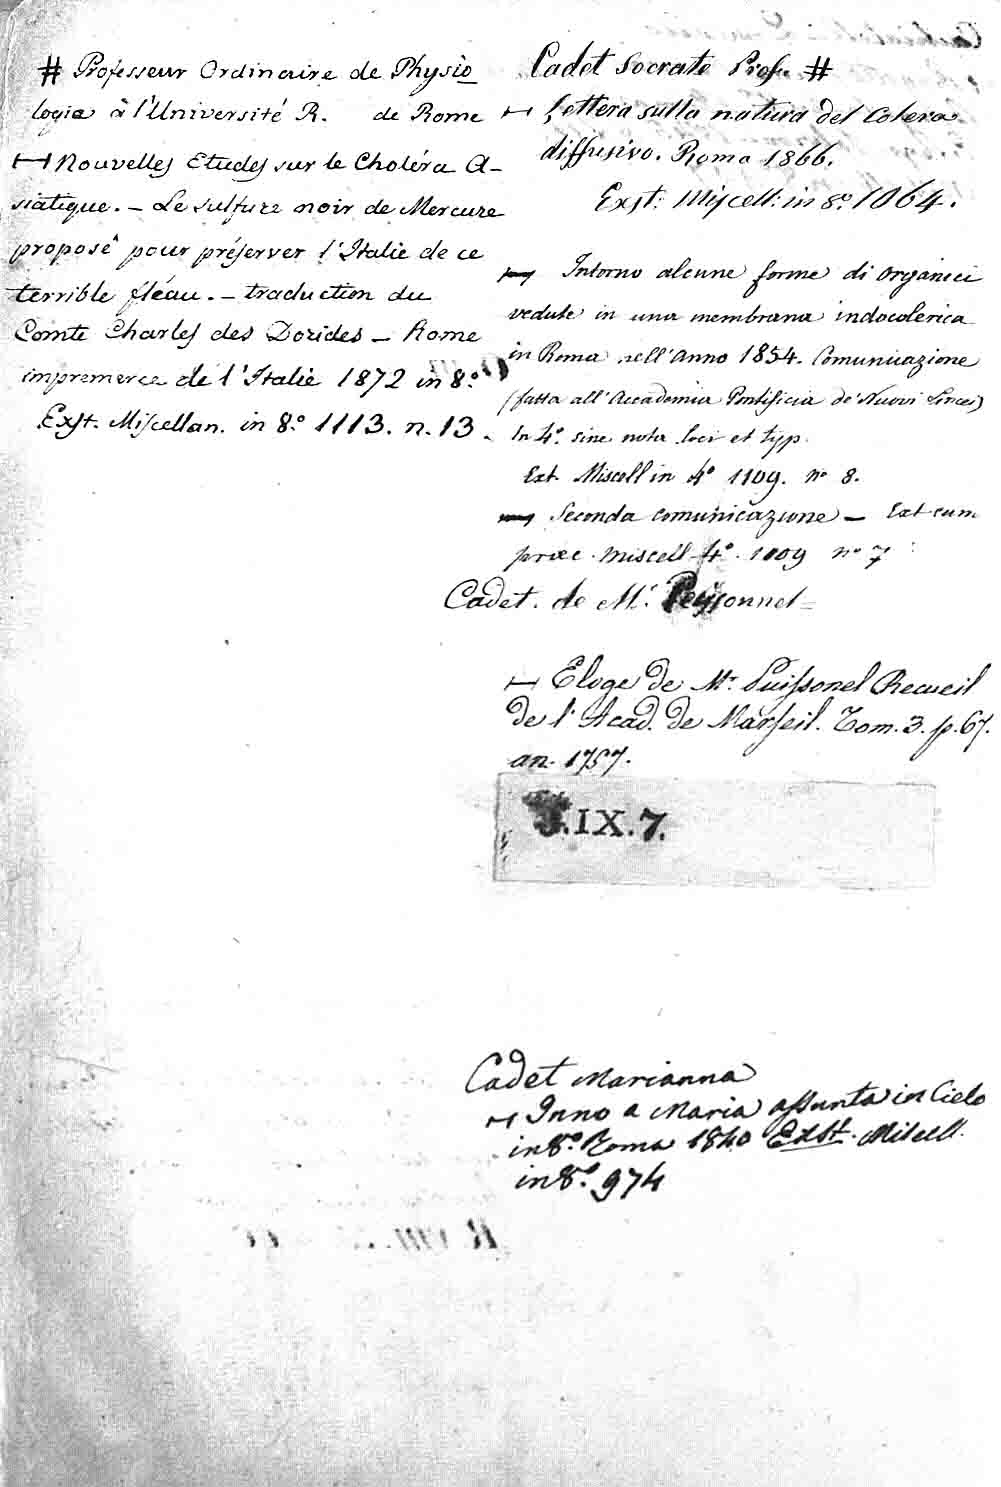 # Professeur Ordinaire de Physio
logia à l'Université R. de Rome
⊢ Nouvelles Etudes sur le Choléra A-
siatique. — Le sulfure noir de Mercure
proposé pour préserver l'Italie de ce
terrible fléau. — traduction du
Comte Charles des Dorides — Rome
impremerce de l'Italie 1872 in 8.º
Exst. Miscellan. in 8.º 1113. n. 13.
Cadet Socrate Profe. #
⊢ Lettera sulla natura del Colera
diffusivo. Roma 1866.
Exst: Miscell: in 8.º 1064.
— Intorno alcune forme di organici
vedute in una membrana indocolerica
in Roma nell'Anno 1854. Comunicazione
(fatta all'Accademia Pontificia de' Nuovi Lincei)
In 4º. sine nota loci et typ.
Ext. Miscell in 4º 1109. nº 8.
— Seconda comunicazione — Ext cum
præc. miscell 4º. 1109 nº 7
Cadet. de Mr. Peyssonnel =
⊢ Eloge de Mr. Puissonel Recueil
de l'Acad. de Marseil. Tom. 3. p. 67.
an. 1757.
.IX.7.
Cadet Marianna
⊢ Inno a Maria assunta in Cielo
in 8.º Roma 1840 Exst. Miscell.
in 8.º 974